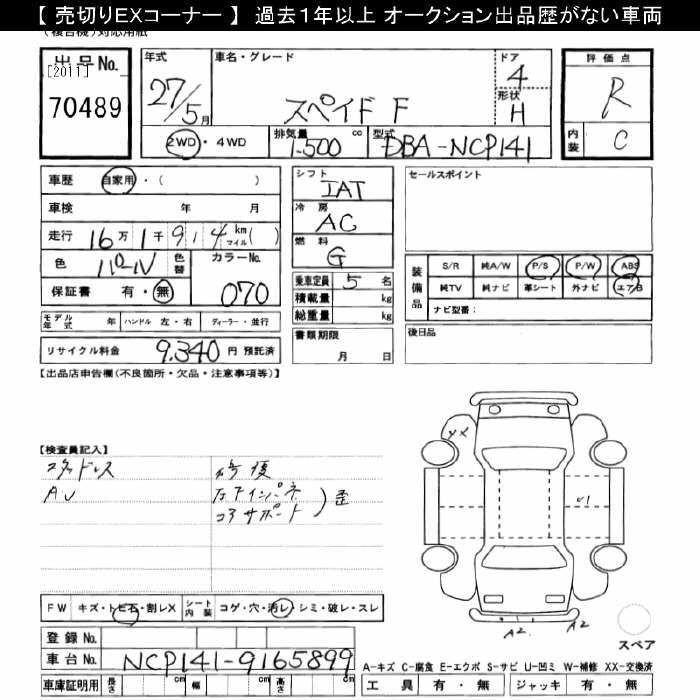 【 売切りEXコーナー 】 過去１年以上 オークション出品歴がない車両
(複合機)対応用紙
出品No.
[2011]
70489
年式
27/5月
車名・グレード
スペイド F
ドア
4
形状
H
2WD・4WD
排気量
1500 cc
型式
DBA-NCP141
評価点
R
内装
C
車歴 自家用・( )
車検 年 月
走行 16万1千914 km マイル( )
色 パール 色替 カラーNo. 070
保証書 有・無
モデル年式 年 ハンドル 左・右 ディーラー・並行
リサイクル料金 9,340円 預託済
シフト
IAT
冷房
AC
燃料
G
乗車定員 5 名
積載量 kg
総重量 kg
書類期限
月 日
セールスポイント
装備品
S/R 純A/W P/S P/W ABS
純TV 純ナビ 革シート 外ナビ エアB
ナビ型番：
後日品
【出品店申告欄(不良箇所・欠品・注意事項等)】
【検査員記入】
スタッドレス
AV
修復
右Fインパネ
コアサポート
)歪
YX
U1
A2 A2
スペア
FW キズ・トビ石・割レX シート内装 コゲ・穴・汚レ・シミ・破レ・スレ
登録No.
車台No. NCP141-9165899
車庫証明用 長さ cm 幅 cm 高さ cm
A-キズ C-腐食 E-エクボ S-サビ U-凹ミ W-補修 XX-交換済
工具 有・無 ジャッキ 有・無